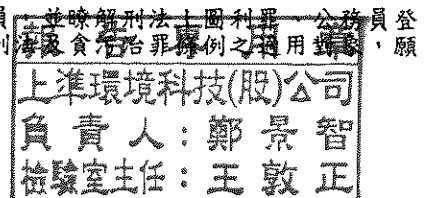 員，並瞭解刑法上圖利罪、公務員登
及貪污治罪條例之適用對象，願
上準環境科技(股)公司
負責人：鄭景智
檢驗室主任：王敦正